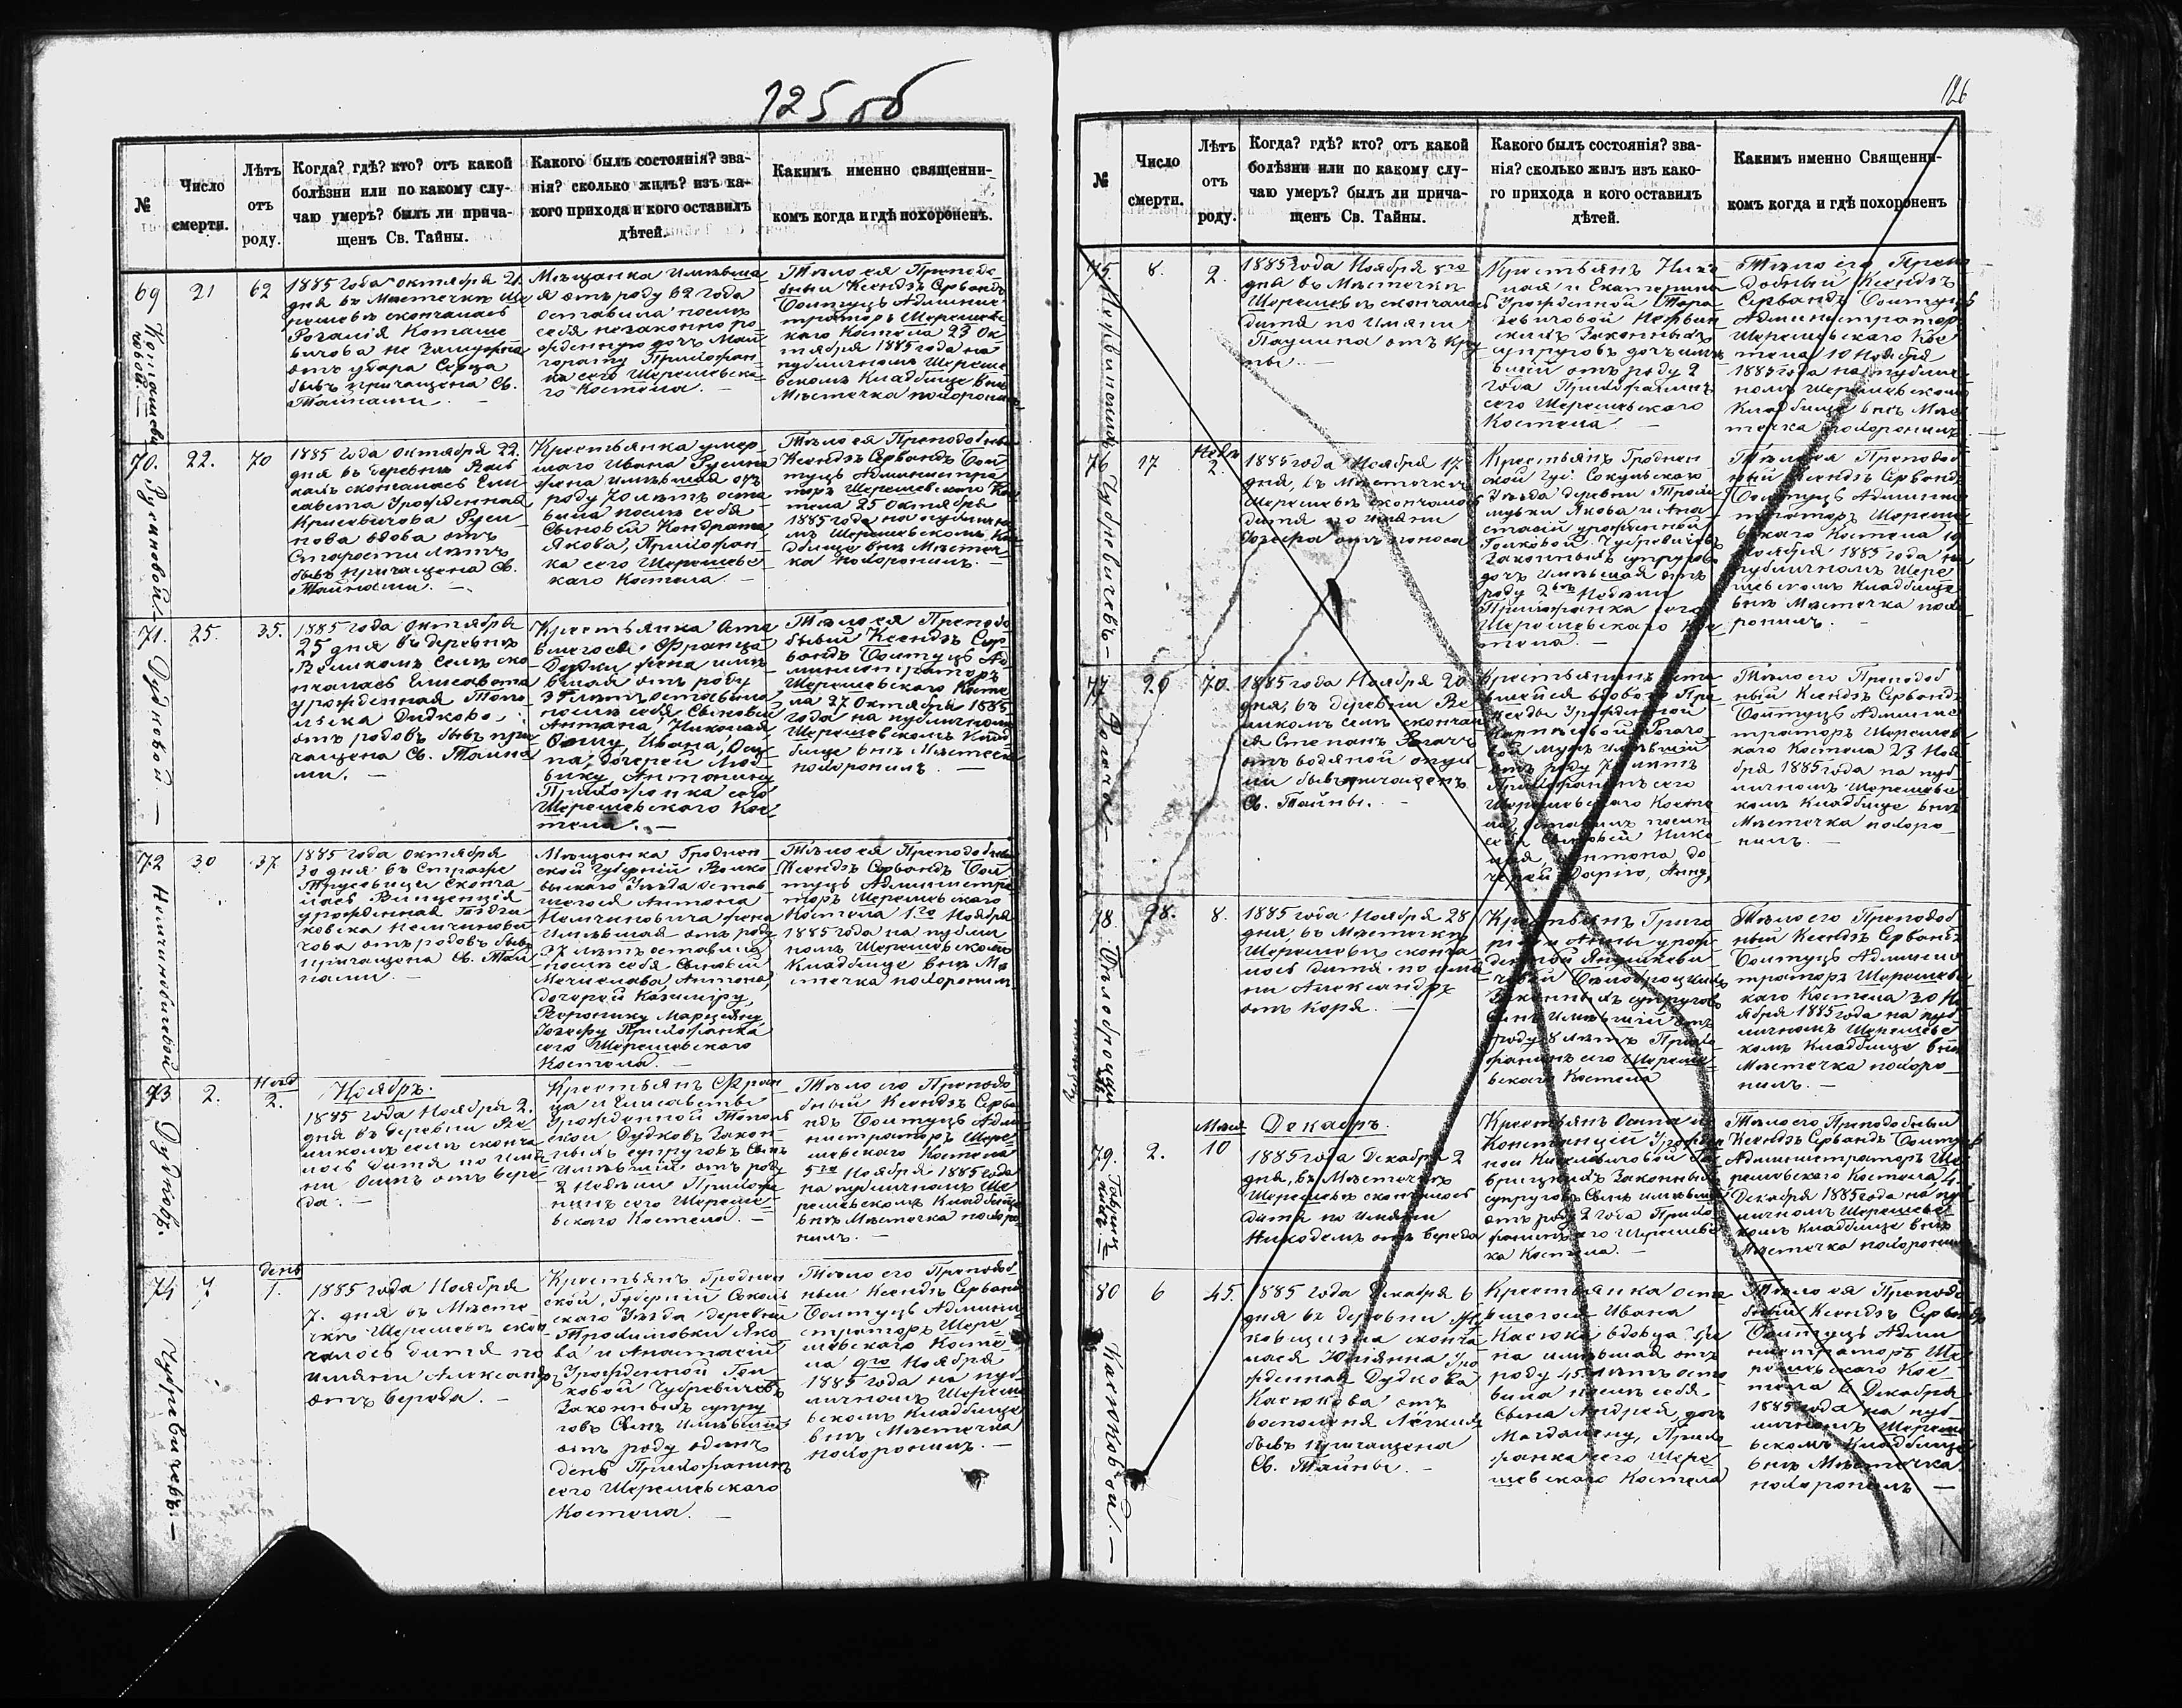 125 об
№
Число
смерти.
Лѣтъ
отъ
роду.
Когда? гдѣ? кто? отъ какой
болѣзни или по какому слу-
чаю умеръ? былъ ли прича-
щенъ Св. Тайны.
Какого былъ состоянія? зва-
нія? сколько жилъ? изъ ка-
кого прихода и кого оставилъ
дѣтей.
Какимъ именно священни-
комъ когда и гдѣ похороненъ.
69
21
62
1885 года октября 21.
дня въ Мѣстечкѣ Ше
решевѣ скончалась
Розалія Коташе
вичова не замужня
отъ удара Сердца
бывъ причащена Св.
Тайнами. —
Мѣщанка имѣвша
я отъ роду 62 года
оставила послѣ
себя незаконно ро
жденную дочь Мал
горату Прихожан
ка сего Шерешевска
го Костела. —
Тѣло ея Преподо
бный Ксендзъ Сервандъ
Болтуць Админис
траторъ Шерешевс
каго Костела 23 Ок
тября 1885 года на
публичномъ Шереше
вскомъ Кладбище внѣ
Мѣстечка похоронилъ
70.
Русиновой.
22.
70
1885 года октября 22.
дня въ деревнѣ
кахъ скончалась Ели
савета Урожденная
Русинова вдова отъ
Старости лѣтъ
бывъ причащена Св.
Тайнами. —
Крестьянка умер
шаго Ивана Русина
жена имѣвшая отъ
роду 70 лѣтъ оста
вила послѣ себя
Сыновей Кондрата,
Якова, Прихожан
ка сего Шерешевс
каго Костела. —
Тѣло ея Преподобный
Ксендзъ Сервандъ Бол
туць Администра
торъ Шерешевского Кос
тела 25 Октября
1885 года на публична
мъ Шерешевскомъ Кла
дбище внѣ Мѣстеч
ка похоронилъ. —
71.
Дудковой —
25.
35.
1885 года октября
25 дня въ деревнѣ
Великомъ Селѣ ско
нчалась Елисавета
урожденная Топо
льска Дудкова
отъ родовъ бывъ при
чащена Св. Тайна
ми. —
Крестьянка Оста
вшегося Франца
Дудки жена имѣ
вшая отъ роду
35 лѣтъ оставила
послѣ себя Сыновей
Антона, Николая
Ивана, Оси
па, дочерей
Антонину
Прихожанка сего
Шерешевского Кос
тела. —
Тѣло ея Преподо
бный Ксендзъ Сер
вандъ Болтуць Ад
министраторъ
Шерешевского Косте
ла 27 Октября 1885
года на публичномъ
Шерешевскомъ Клад
бище внѣ Мѣстечка
похоронилъ. —
72
30
37
1885 года октября
30 дня въ Стражѣ
сконча
лась Винценція
урожденная
отъ родовъ бывъ
причащена Св. Тай
нами. —
Мѣщанка Гроднен
ской Губерніи Волко
выскаго Уѣзда остав
шегося Антона
Немчиновича жена
имѣвшая отъ роду
37 лѣтъ оставила
послѣ себя Сыновей
Мечислава, Антона,
дочерей Казимиру,
Веронику, Марціяну,
Іозефу Прихожанка
сего Шерешевского
Костела. —
Тѣло ея Преподобный
Ксендзъ Сервандъ Бол
туць Администра
торъ Шерешевского
Костела 1го Ноября
1885 года на публич
номъ Шерешевскомъ
Кладбище внѣ Мѣ
стечка похоронилъ
73
Дудковъ.
2.
Нед
2.
Ноябрь.
1885 года Ноября 2.
дня въ деревни Ве
ликомъ селѣ сконча
лось дитя по имя
ни Осипъ отъ вере
да. —
Крестьянъ Фран
ца и Елисаветы
Урожденной Топольс
кой Дудковъ Закон
ныхъ супруговъ Сынъ
имѣвшій отъ роду
2 недѣли Прихожа
нинъ сего Шереше
вского Костела. —
Тѣло его Преподо
бный Ксендзъ Серва
ндъ Болтуць Адми
нистраторъ Шере
шевского Костела
5го Ноября 1885 года
на публичномъ Ше
решевскомъ Кладбище
внѣ Мѣстечка похоро
нилъ. —
74
Чудревичевъ. —
7
день
1.
1885 года Ноября
7. дня въ Мѣсте
чкѣ Шерешевѣ скон
чалось дитя по
имяни Александръ
отъ вереда. —
Крестьянъ Гроднен
ской Губерніи Соколь
скаго Уѣзда деревни
Трохимовки Яко
ва и Анастасіи
Урожденной Гол
ковой Чудревичевъ
Законныхъ супру
говъ Сынъ имѣвшій
отъ роду одинъ
день Прихожанинъ
сего Шерешевского
Костела. —
Тѣло его Преподоб
ный Ксендзъ Сервандъ
Болтуць Админи
страторъ Шере
шевского Косте
ла 9го Ноября
1885 года на пуб
личномъ Шереше
вскомъ Кладбище
внѣ Мѣстечка
похоронилъ. —
126
№
Число
смерти.
Лѣтъ
отъ
роду.
Когда? гдѣ? кто? отъ какой
болѣзни или по какому слу-
чаю умеръ? былъ ли прича-
щенъ Св. Тайны.
Какого былъ состоянія? зва-
нія? сколько жилъ изъ како-
го прихода и кого оставилъ
дѣтей.
Какимъ именно Священни-
комъ когда и гдѣ похороненъ
75
8.
2.
1885 года Ноября 8го
дня во Мѣстечкѣ
Шерешевѣ скончалось
дитя по имяни
Паулина отъ кру
пы. —
Крестьянъ Нико
лая и Екатерины
Урожденной
Законныхъ
супруговъ дочь имѣ
вшей отъ роду 2
года Прихожанинъ
сего Шерешевского
Костела —
Тѣло его Препо
добный Ксендзъ
Сервандъ Болтуць
Администраторъ
Шерешевского Кос
тела 10 Ноября
1885 года на публич
номъ Шерешевскомъ
Кладбище внѣ Мѣс
течка похоронилъ
76
Чудревичевъ —
17
Недѣ
2.
1885 года Ноября 17
дня, въ Мѣстечкѣ
Шерешевѣ скончалось
дитя по имяни
Іозефа отъ поноса
Крестьянъ Гроднен
ской Гу. Сокульскаго
Уѣзда деревни Трохи
мувки Якова и Ана
стасіи урожденной
Голковой Чудревичевъ
Законныхъ супруговъ
дочь имѣвшая отъ
роду 2 Недѣли
Прихожанка сего
Шерешевского Кос
тела. —
Тѣло ея Преподоб
ный Ксендзъ Сервандъ
Болтуць Админис
траторъ Шереше
вскаго Костела 19
Ноября 1885 года на
публичномъ Шере
шевскомъ Кладбище
внѣ Мѣстечка похо
ронилъ. —
77
20
70.
1885 года Ноября 20
дня, въ деревни Ве
ликомъ селѣ сконча
ся Степанъ Рогачъ
отъ водяной опух
ли бывъ причащенъ
Св. Тайны. —
Крестьянинъ оста
вшейся вдовы Пра
кседы Урожденной
Рогачо
вой мужъ имѣвшій
отъ роду 70 лѣтъ
Прихожанинъ сего
Шерешевского Косте
ла, оставилъ послѣ
себя Сыновей Нико
лая, Антона, до
черей Дарію, Анну,
Тѣло его Преподоб
ный Ксендзъ Сервандъ
Болтуць Админис
траторъ Шерешевс
каго Костела 23 Ноя
бря 1885 года на пуб
личномъ Шерешевс
комъ Кладбище внѣ
Мѣстечка похоро
нилъ. —
78
28.
8.
1885 года Ноября 28
дня, въ Мѣстечкѣ
Шерешевѣ сконча
лось дитя по имя
ни Александръ
отъ коря. —
Крестьянъ Григо
рія и Анны урож
денной Янушкеви
чевой Бѣлобродскихъ
Законныхъ супруговъ
Сынъ имѣвшій отъ
роду 8 лѣтъ Прихо
жанинъ сего Шереше
вского Костела
Тѣло его Преподоб
ный Ксендзъ Сервандъ
Болтуць Админис
траторъ Шерешевс
каго Костела 30 Но
ября 1885 года на пуб
личномъ Шерешевс
комъ Кладбище внѣ
Мѣстечка похоро
нилъ. —
79.
2.
10
Декабрь.
1885 года Декабря 2
дня, въ Мѣстечкѣ
Шерешевѣ скончалось
дитя по имяни
Никодемъ отъ вереда
Крестьянъ Осипа и
Констанціи Урожден
ной
Законныхъ
супруговъ Сынъ имѣвшій
отъ роду 2 года Прихо
жанинъ его Шерешевс
ка Костела. —
Тѣло его Преподобный
Ксендзъ Сервандъ Болтуць
Администраторъ Ше
решевского Костела 4
Декабря 1885 года на пуб
личномъ Шерешевс
комъ Кладбище внѣ
Мѣстечка похоронилъ
80
Касюковой. —
6
45.
1885 года Декабря 6
дня въ деревни
сконча
лася Юліянна Уро
жденная Дудкова
Касюкова отъ
воспаленія Лёгкихъ
бывъ причащена
Св. Тайны. —
Крестьянка оста
вшегося Ивана
Касюка вдовца же
на имѣвшая отъ
роду 45 лѣтъ оста
вила послѣ себя
Сына Андрея, дочь
Магдалену, Прихо
жанка сего Шере
шевского Костела
Тѣло ея Преподо
бный Ксендзъ Сервандъ
Болтуць Адми
нистраторъ Ше
решевского Кос
тела Декабря
1885 года на пуб
личномъ Шереше
вскомъ Кладбище
внѣ Мѣстечка
похоронилъ —